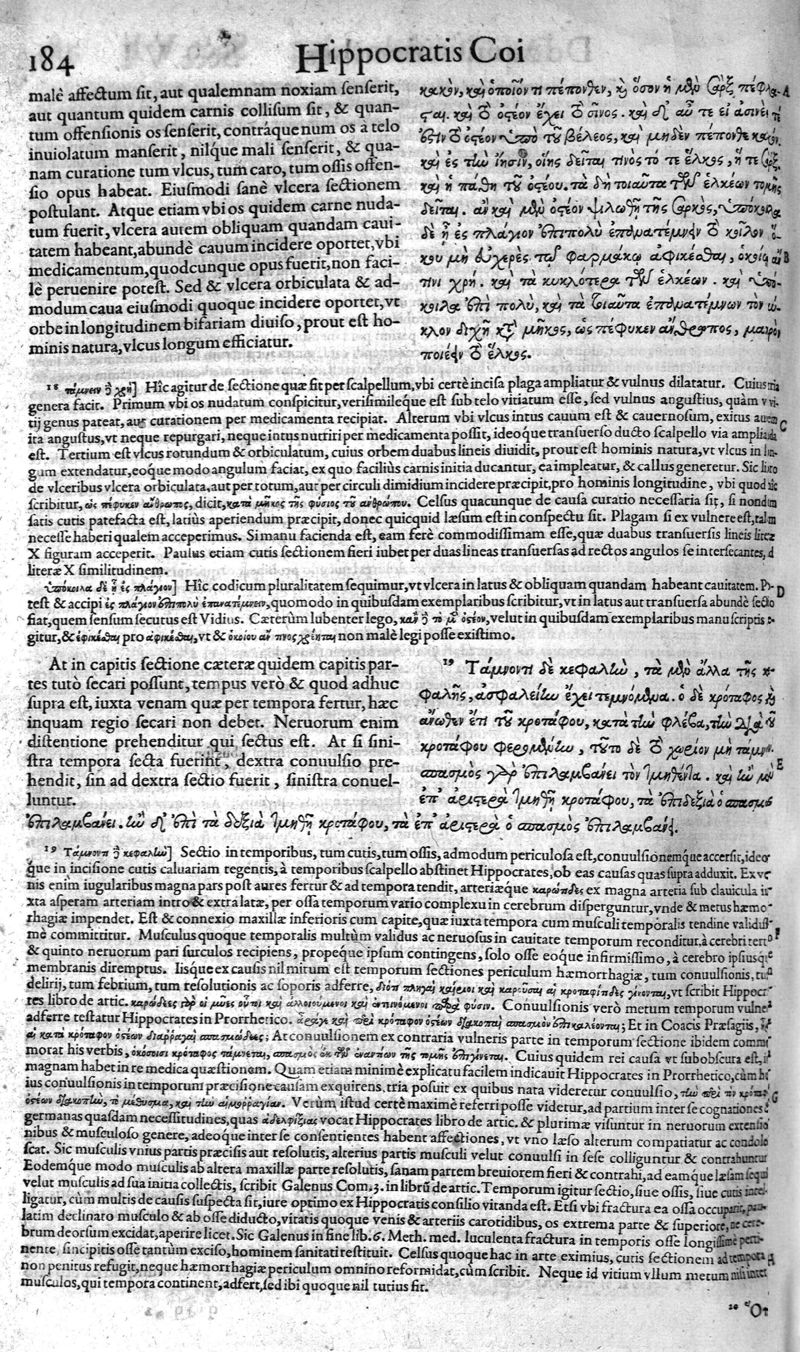 184 Hippocratis Coi
malè affectum sit, aut qualemnam noxiam senserit,
aut quantum quidem carnis collisum sit, & quan-
tum offensionis os senserit, contràque num os a telo
inuiolatum manserit, nilque mali senserit, & qua-
nam curatione tum vlcus, tum caro, tum ossis offen-
sio opus habeat. Eiusmodi sanè vlcera sectionem
postulant. Atque etiam vbi os quidem carne nuda-
tum fuerit, vlcera autem obliquam quandam caui-
tatem habeant, abundè cauum incidere oportet, vbi
medicamentum, quodcunque opus fuerit, non faci-
lè peruenire potest. Sed & vlcera orbiculata & ad-
modum caua eiusmodi quoque incidere oportet, vt
orbe in longitudinem bifariam diuiso, prout est ho-
minis natura, vlcus longum efficiatur.
κακὸν, καὶ ὁποῖόν τι πέπονθεν, καὶ ὅσον ἡ μὲν σὰρξ
καὶ τὸ ὀστέον ἔχει τὸ σῖνος.
τὸ ὀστέον τοῦ βέλεος, καὶ μηδὲν πέπονθε
καὶ ἐς τὴν ἴησιν, οἵης δεῖται τινος τό τε ἕλκος, ἥ τε σὰρξ
καὶ ἡ πάθη τοῦ ὀστέου. τὰ δὴ τοιαῦτα τῶν ἑλκέων τομῆς
δεῖται. ὀστέον ψιλωθῇ τῆς σαρκὸς,
δὲ ᾖ ἐς πλάγιον ἐπιπολὺ τὸ κοῖλον
μὴ εὐχερὲς τῷ φαρμάκῳ ἀφικέσθαι,
τινι χρῇ. καὶ τὰ κυκλοτερέα τῶν ἑλκέων. καὶ
ἐπὶ πολὺ, καὶ τὰ τοιαῦτα
κλον διχῇ κατὰ μῆκος, ὡς πέφυκεν ἄνθρωπος, μακρὸν
ποιέειν τὸ ἕλκος.
18 τάμνειν δὲ χρὴ] Hîc agitur de sectione quæ fit per scalpellum, vbi certè incisa plaga ampliatur & vulnus dilatatur. Cuius tria
genera facit. Primum vbi os nudatum conspicitur, verisimileque est sub telo vitiatum esse, sed vulnus angustius, quàm vt vi-
tij genus pateat, aut curationem per medicamenta recipiat. Alterum vbi vlcus intus cauum est & cauernosum, exitus autem
ita angustus, vt neque repurgari, neque intus nutriri per medicamenta possit, ideoque transuerso ducto scalpello via amplianda
est. Tertium est vlcus rotundum & orbiculatum, cuius orbem duabus lineis diuidit, prout est hominis natura, vt vlcus in lon-
gum extendatur, eoque modo angulum faciat, ex quo faciliùs carnis initia ducantur, ea impleatur, & callus generetur. Sic
de vlceribus vlcera orbiculata, aut per totum, aut per circuli dimidium incidere præcipit, pro hominis longitudine, vbi quod
scribitur, ὡς πέφυκεν ἄνθρωπος, dicit, κατὰ μῆκος τῆς φύσιος τοῦ ἀνθρώπου. Celsus quacunque de causa curatio necessaria sit, si nondum
satis cutis patefacta est, latiùs aperiendum præcipit, donec quicquid læsum est in conspectu sit. Plagam si ex vulnere est, talem
necesse haberi qualem acceperimus. Si manu facienda est, eam ferè commodissimam esse, quæ duabus transuersis lineis literæ
X figuram acceperit. Paulus etiam cutis sectionem fieri iubet per duas lineas transuersas ad rectos angulos se intersecantes,
literæ X similitudinem.
ὑπόκοιλα δὲ ᾖ ἐς πλάγιον] Hîc codicum pluralitatem sequimur, vt vlcera in latus & obliquam quandam habeant cauitatem. Po-
test & accipi ἐς πλάγιον ἐπιπολὺ ἐπανατέμνειν, quomodo in quibusdam exemplaribus scribitur, vt in latus aut transuersa abundè sectio
fiat, quem sensum secutus est Vidius. Cæterùm lubenter lego, velut in quibusdam exemplaribus manu scriptis
gitur, & ἐφικέσθαι pro ἀφικέσθαι, vt & non malè legi posse existimo.
At in capitis sectione cæteræ quidem capitis par-
tes tutò secari possunt, tempus verò & quod adhuc
supra est, iuxta venam quæ per tempora fertur, hæc
inquam regio secari non debet. Neruorum enim
distentione prehenditur qui sectus est. At si sini-
stra tempora secta fuerint, dextra conuulsio pre-
hendit, sin ad dextra sectio fuerit, sinistra conuel-
luntur.
19 Τάμνοντι δὲ κεφαλὴν, τὰ μὲν ἄλλα τῆς κε-
φαλῆς, ἀσφαλείην ἔχει τεμνόμενα. ὁ δὲ κρόταφος καὶ
ἄνωθεν ἔτι τοῦ κροτάφου, κατὰ τὴν φλέβα, τὴν διὰ τοῦ
κροτάφου φερομένην, τοῦτο δὲ τὸ χωρίον μὴ τάμν
σπασμὸς γὰρ ἐπιλαμβάνει τὸν τμηθέντα. καὶ ἢν μὲν
ἐπ' ἀριστερὰ τμηθῇ κροτάφου, τὰ ἐπιδεξιὰ ὁ σπασμὸς
ἐπιλαμβάνει. ἢν δ' ἐπὶ τὰ δεξιὰ τμηθῇ κροτάφου, τὰ ἐπ' ἀριστερὰ ὁ σπασμὸς ἐπιλαμβάνει.
19 Τάμνοντι δὲ κεφαλὴν] Sectio in temporibus, tum cutis, tum ossis, admodum periculosa est, conuulsionemque accersit, ideo-
que in incisione cutis caluariam tegentis, à temporibus scalpello abstinet Hippocrates, ob eas causas quas supra adduxit. Ex ve-
nis enim iugularibus magna pars post aures fertur & ad tempora tendit, arteriæque καρώτιδες ex magna arteria sub clauicula iu-
xta asperam arteriam intro & extra latæ, per ossa temporum vario complexu in cerebrum disperguntur, vnde & metus hæmo-
rhagiæ impendet. Est & connexio maxillæ inferioris cum capite, quæ iuxta tempora cum musculi temporalis tendine validissi-
mè committitur. Musculus quoque temporalis multùm validus ac neruosus in cauitate temporum reconditur, à cerebri tertio
& quinto neruorum pari surculos recipiens, propeque ipsum contingens, solo osse eoque infirmissimo, à cerebro ipsiusque
membranis diremptus. Iisque ex causis nil mirum est temporum sectiones periculum hæmorrhagiæ, tum conuulsionis, tum
delirij, tum febrium, tum resolutionis ac soporis adferre, vt scribit Hippocra-
tes libro de artic. Conuulsionis verò metum temporum vulnera
adferre testatur Hippocrates in Prorrhetico. Et in Coacis Præsagiis,
Ac conuulsionem ex contraria vulneris parte in temporum sectione ibidem comme-
morat his verbis, Cuius quidem rei causa vt subobscura est,
magnam habet in re medica quæstionem. Quam etiam minimè explicatu facilem indicauit Hippocrates in Prorrhetico, cùm hu-
ius conuulsionis in temporum præcisione causam exquirens, tria posuit ex quibus nata videretur conuulsio,
Verùm istud certè maximè referri posse videtur, ad partium inter se cognationes &
germanas quasdam necessitudines, quas ἀδελφίξιας vocat Hippocrates libro de artic. & plurimæ visuntur in neruorum extensio-
nibus & musculoso genere, adeoque inter se consentientes habent affectiones, vt vno læso alterum compatiatur ac condole-
scat. Sic musculis vnius partis præcisis aut resolutis, alterius partis musculi velut conuulsi in sese colliguntur & contrahuntur
Eodemque modo musculis ab altera maxillæ parte resolutis, sanam partem breuiorem fieri & contrahi, ad eamque læsam sequi
velut musculis ad sua initia collectis, scribit Galenus Com. 3. in librũ de artic. Temporum igitur sectio, siue ossis, siue cutis intel-
ligatur, cùm multis de causis suspecta sit, iure optimo ex Hippocratis consilio vitanda est. Etsi vbi fractura ea ossa occuparit, pau-
latim declinato musculo & ab osse diducto, vitatis quoque venis & arteriis carotidibus, os extrema parte & superiore, ne cere-
brum deorsum excidat, aperire licet. Sic Galenus in fine lib. 6. Meth. med. luculenta fractura in temporis osse longissimè perti-
nente, sincipitis osse tantùm exciso, hominem sanitati restituit. Celsus quoque hac in arte eximius, cutis sectionem ad tempora
non penitus refugit, neque hæmorrhagiæ periculum omnino reformidat, cùm scribit. Neque id vitium vllum metum nisi inter
musculos, qui tempora continent, adfert, sed ibi quoque nil tutius sit.
20 Ὅτ